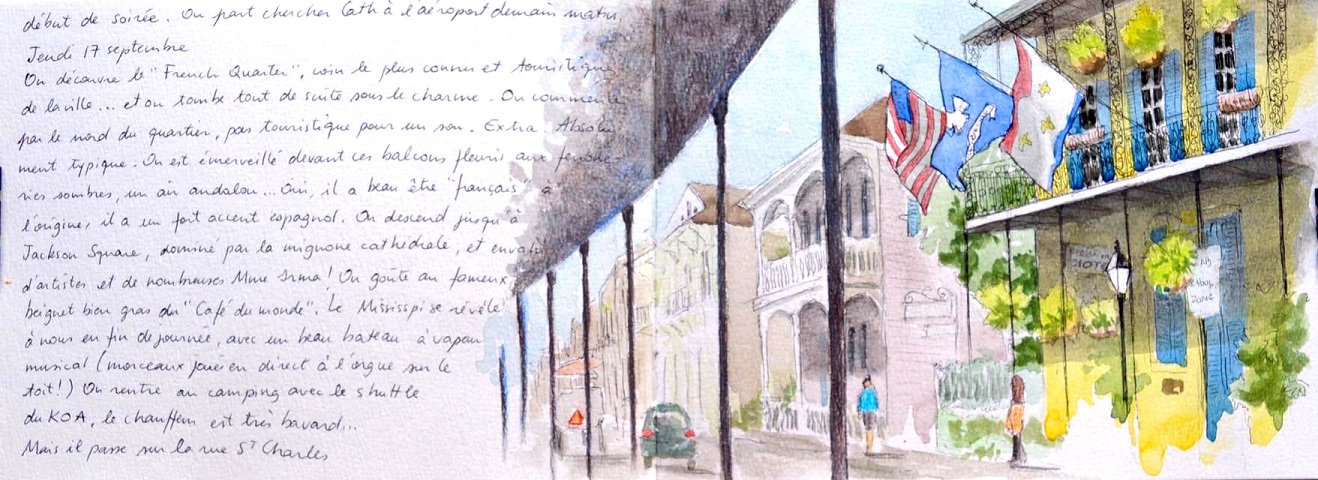 début de soirée. On part chercher Cath à l'aéroport demain matin
Jeudi 17 septembre
On découvre le "French Quarter", coin le plus connu et touristique
de la ville... et on tombe tout de suite sous le charme. On commence
par le nord du quartier, pas touristique pour un sou. Extra. Absolu
ment typique. On est émerveillé devant ces balcons fleuris aux ferronne-
ries sombres, un air andalou... Oui, il a beau être "français" à
l'origine, il a un fort accent espagnol. On descend jusqu'à
Jackson Square, dominé par la mignone cathédrale, et envahi
d'artistes et de nombreuses Mme Irma! On goûte au fameux
beignet bien gras du "Café du monde". Le Mississipi se révèle
à nous en fin de journée, avec un beau bateau à vapeur
musical (morceaux joué en direct à l'orgue sur le
toit!) On rentre au camping avec le shuttle
du KOA, le chauffeur est très bavard...
Mais il passe sur la rue St Charles
ZONE